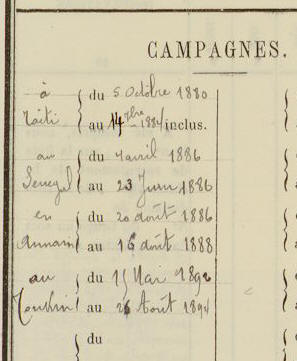 CAMPAGNES.
à
Taïti
du 5 Octobre 1880
au 14 9bre 1881 inclus.
au
Sénégal
du 4 avril 1886
au 23 Juin 1886
en
Annam
du 20 août 1886
au 16 août 1888
au
Tonkin
du 15 Mai 1892
au 26 Août 1894
du